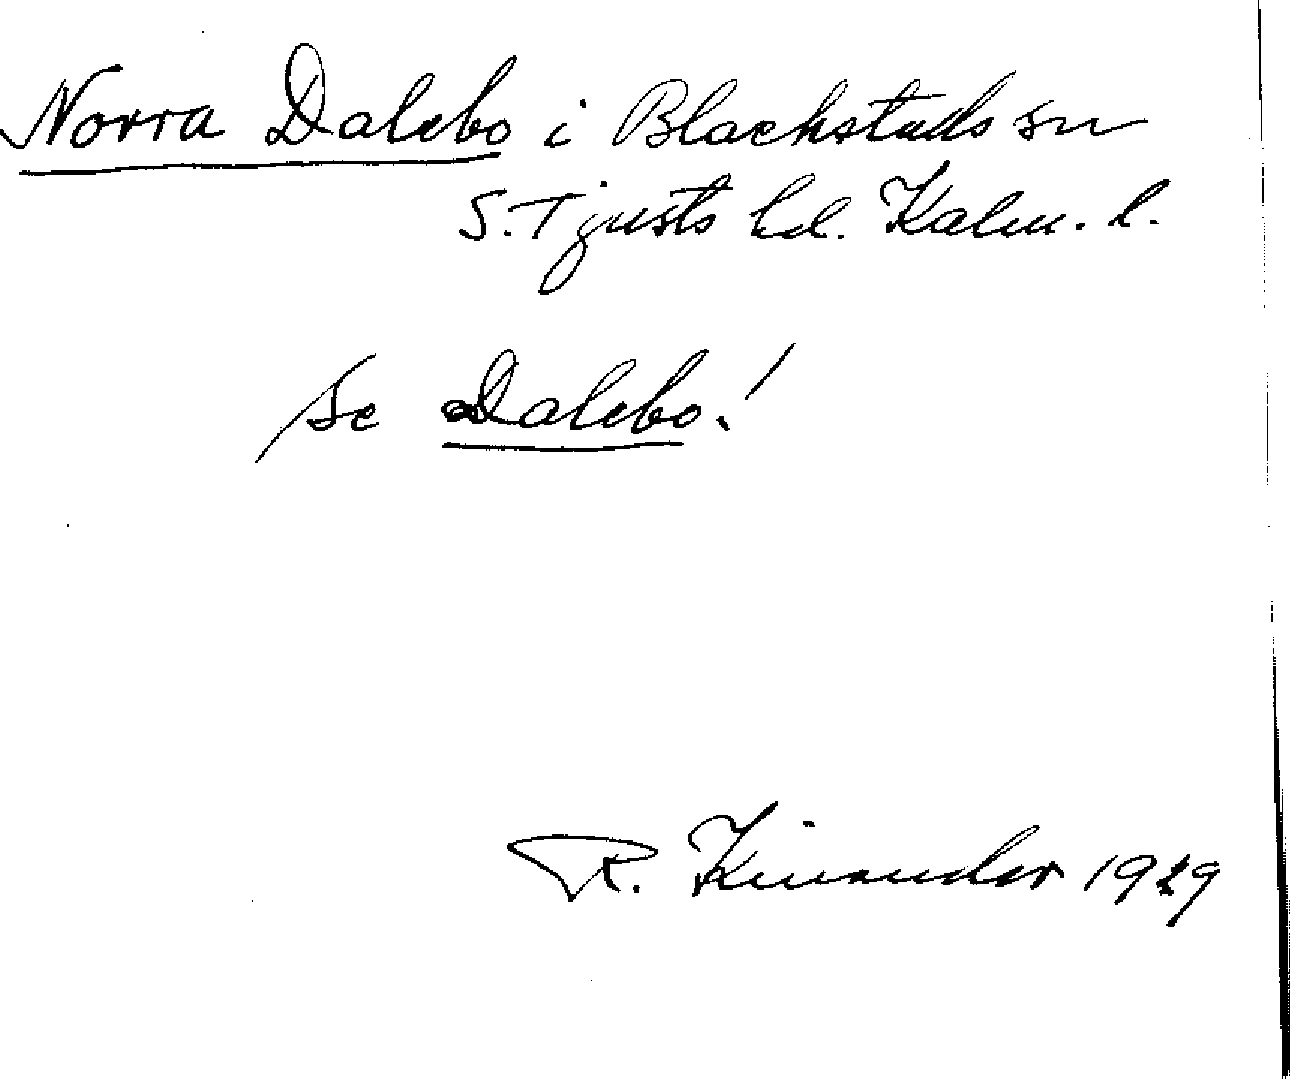 Norra Dalebo i Blackstads sn
S. Tjusts hd. Kalm. l.
se Dalebo!
R. Kinander 1929